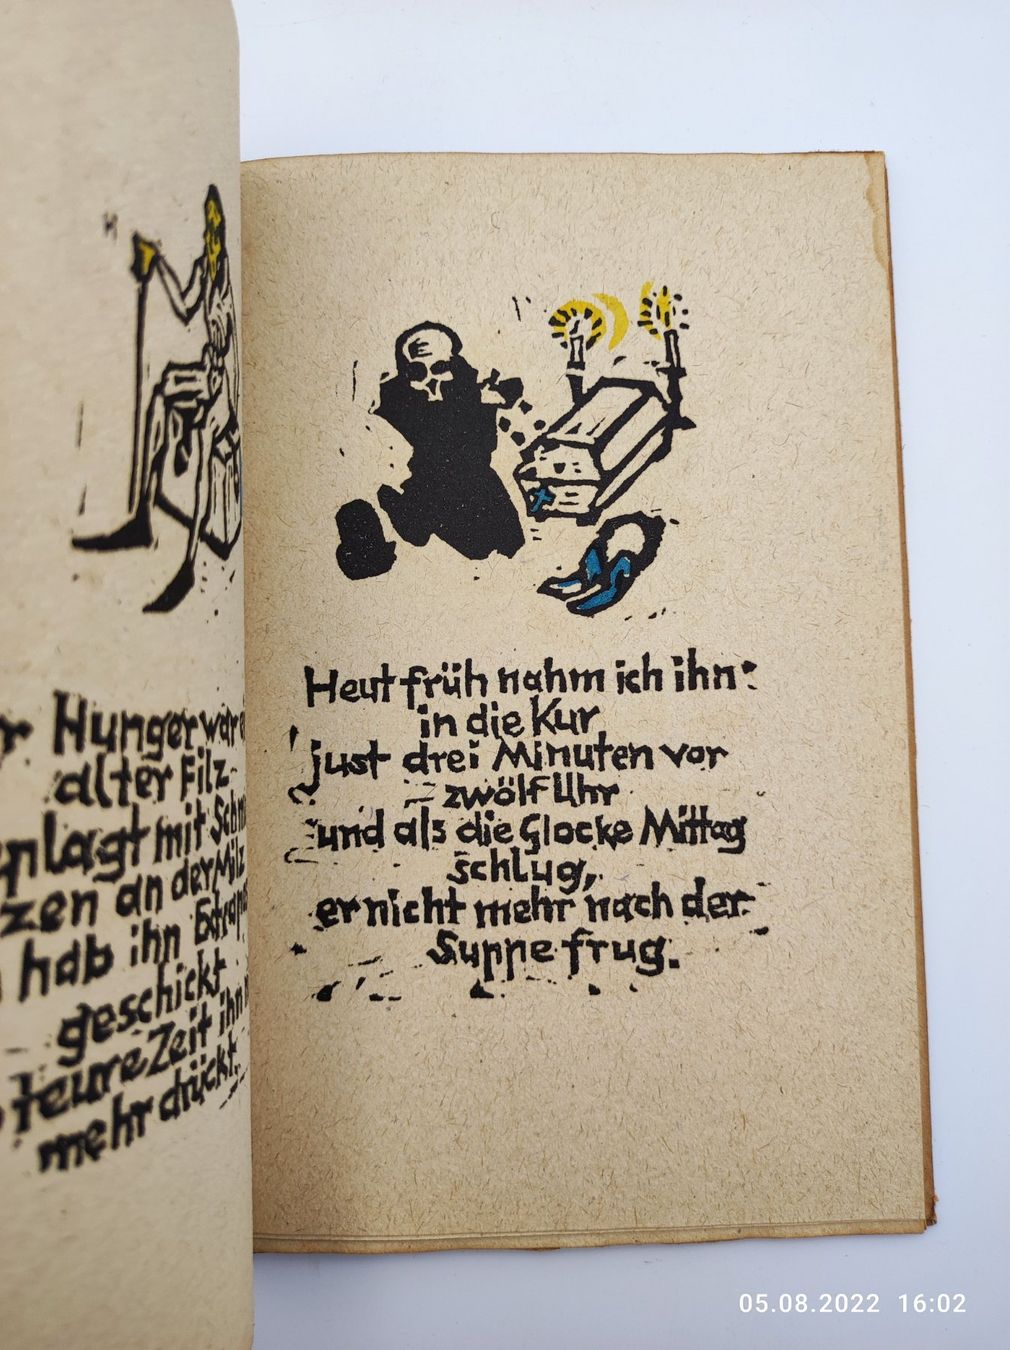 Hunger war
alter Filz
lagt mit
zen an der Milz
hab ihn
geschickt
teure Zeit ihn
mehr drückt.
Heut früh nahm ich ihn
in die Kur
just drei Minuten vor
zwölf Uhr
und als die Glocke Mittag
schlug,
er nicht mehr nach der
Suppe frug.
05.08.2022 16:02